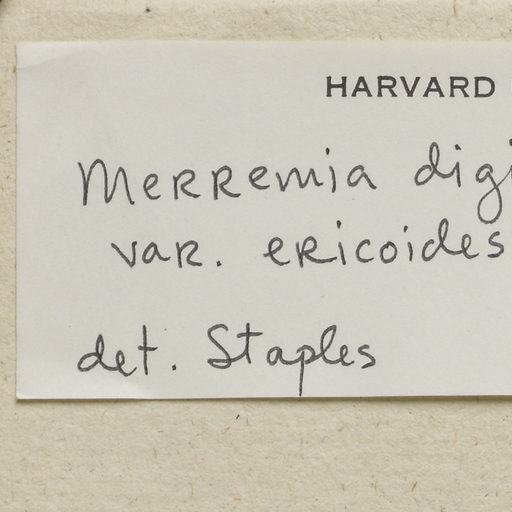 HARVARD
Merremia digi
var. ericoides
det. Staples